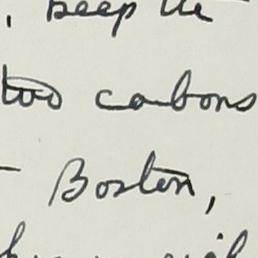 , keep the
two carbons
– Boston,